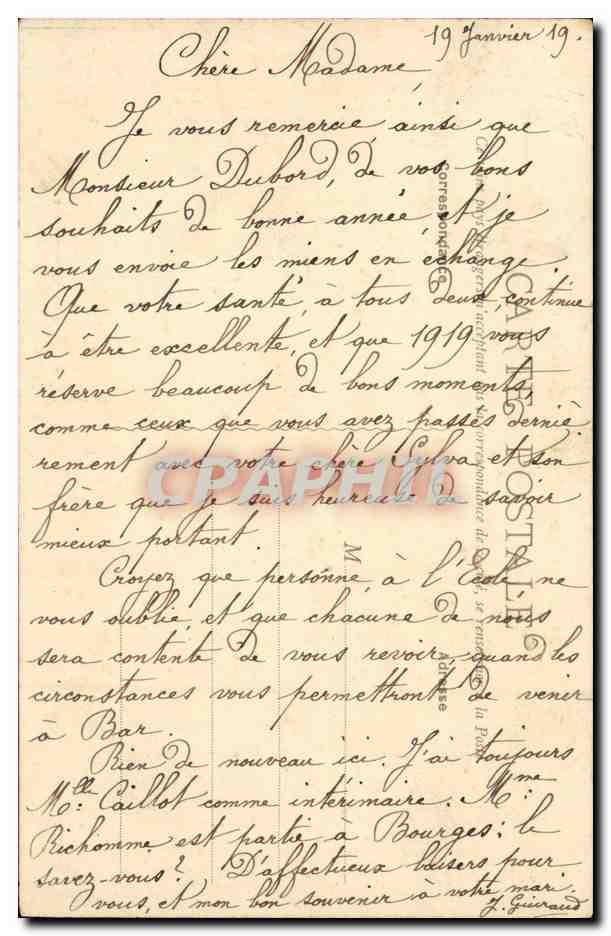 19 Janvier 19.
Chère Madame,
Je vous remercie, ainsi que
Monsieur Dubord, de vos bons
souhaits de bonne année et je
vous envoie les miens en échange.
Que votre santé, à tous deux, continue
à être excellente, et que 1919 vous
réserve beaucoup de bons moments,
comme ceux que vous avez passés derniè
rement avec votre chère Sylva et son
frère que je suis heureuse de savoir
mieux portant.
Croyez que personne, à l'École, ne
vous oublie, et que chacune de nous
sera contente de vous revoir, quand les
circonstances vous permettront de venir
à Bar.
Rien de nouveau ici. J'ai toujours
Mlle Caillot comme intérimaire. Mme
Richomme est partie à Bourges : le
savez-vous? D'affectueux baisers pour
vous, et mon bon souvenir à votre mari.
J. Guiraud
CARTE POSTALE
Correspondance
Adresse
M
CPAPHIL